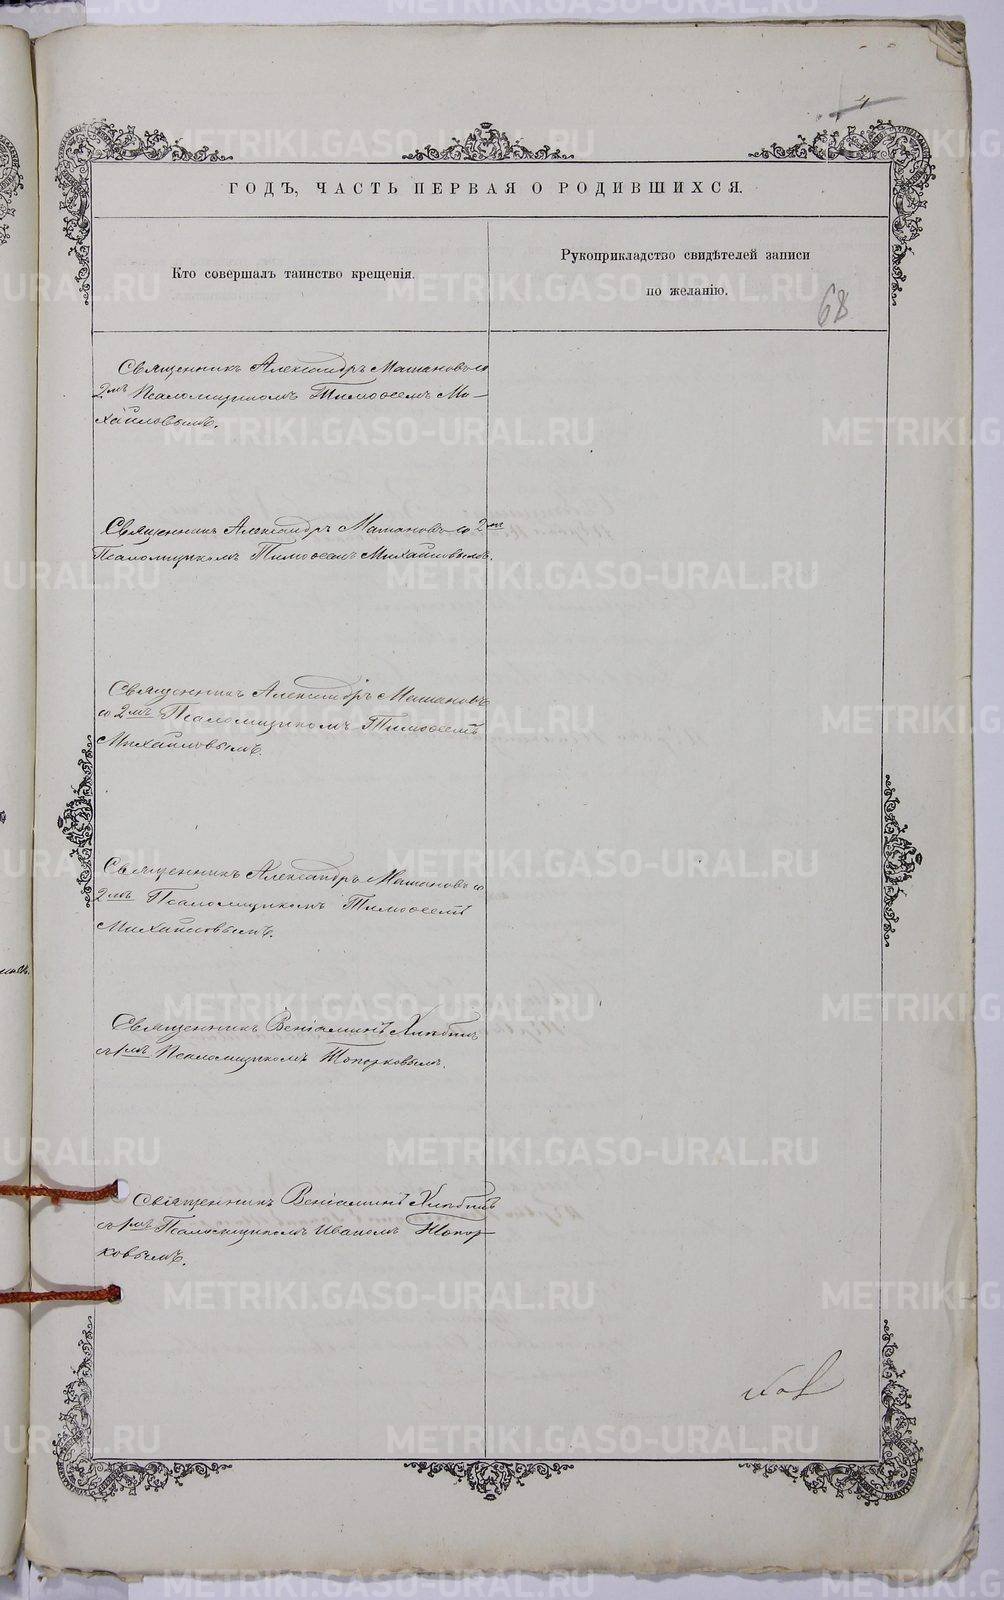 4
ГОДЪ, ЧАСТЬ ПЕРВАЯ О РОДИВШИХСЯ.
Кто совершалъ таинство крещенія.
Рукоприкладство свидѣтелей записи
по желанію.
68
Священникъ Александръ Матановъ со
2мъ Псаломщикомъ Тимоѳеемъ Ми-
хайловымъ.
Священникъ Александръ Матановъ со 2мъ
Псаломщикомъ Тимоѳеемъ Михайловымъ.
Священникъ Александръ Матановъ
со 2мъ Псаломщикомъ Тимоѳеемъ
Михайловымъ.
Священникъ Александръ Матановъ со
2мъ Псаломщикомъ Тимоѳеемъ
Михайловымъ.
Священникъ Веніаминъ Хлѣбинъ
съ 1мъ Псаломщикомъ Топорковымъ.
Священникъ Веніаминъ Хлѣбинъ
съ 1мъ Псаломщикомъ Иваномъ Топор-
ковымъ.
METRIKI.GASO-URAL.RU